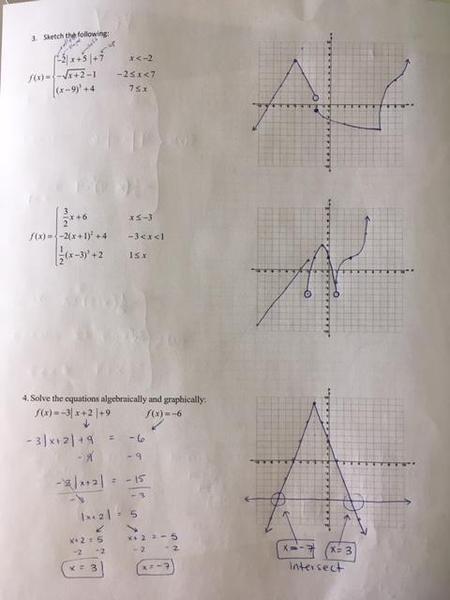 3. Sketch the following:
-2|x+5|+7 x<-2
f(x)= -√x+2 -1 -2≤x<7
(x-9)³+4 7≤x
3/2 x+6 x≤-3
f(x)= -2(x+1)²+4 -3<x<1
1/2 (x-3)³+2 1≤x
4. Solve the equations algebraically and graphically:
f(x)=-3|x+2|+9 f(x)=-6
-3|x+2|+9 = -6
-9 -9
-3|x+2| = -15
-3 -3
|x+2| = 5
x+2=5 x+2=-5
-2 -2 -2 -2
x=3 x=-7
x=-7 x=3
intersect